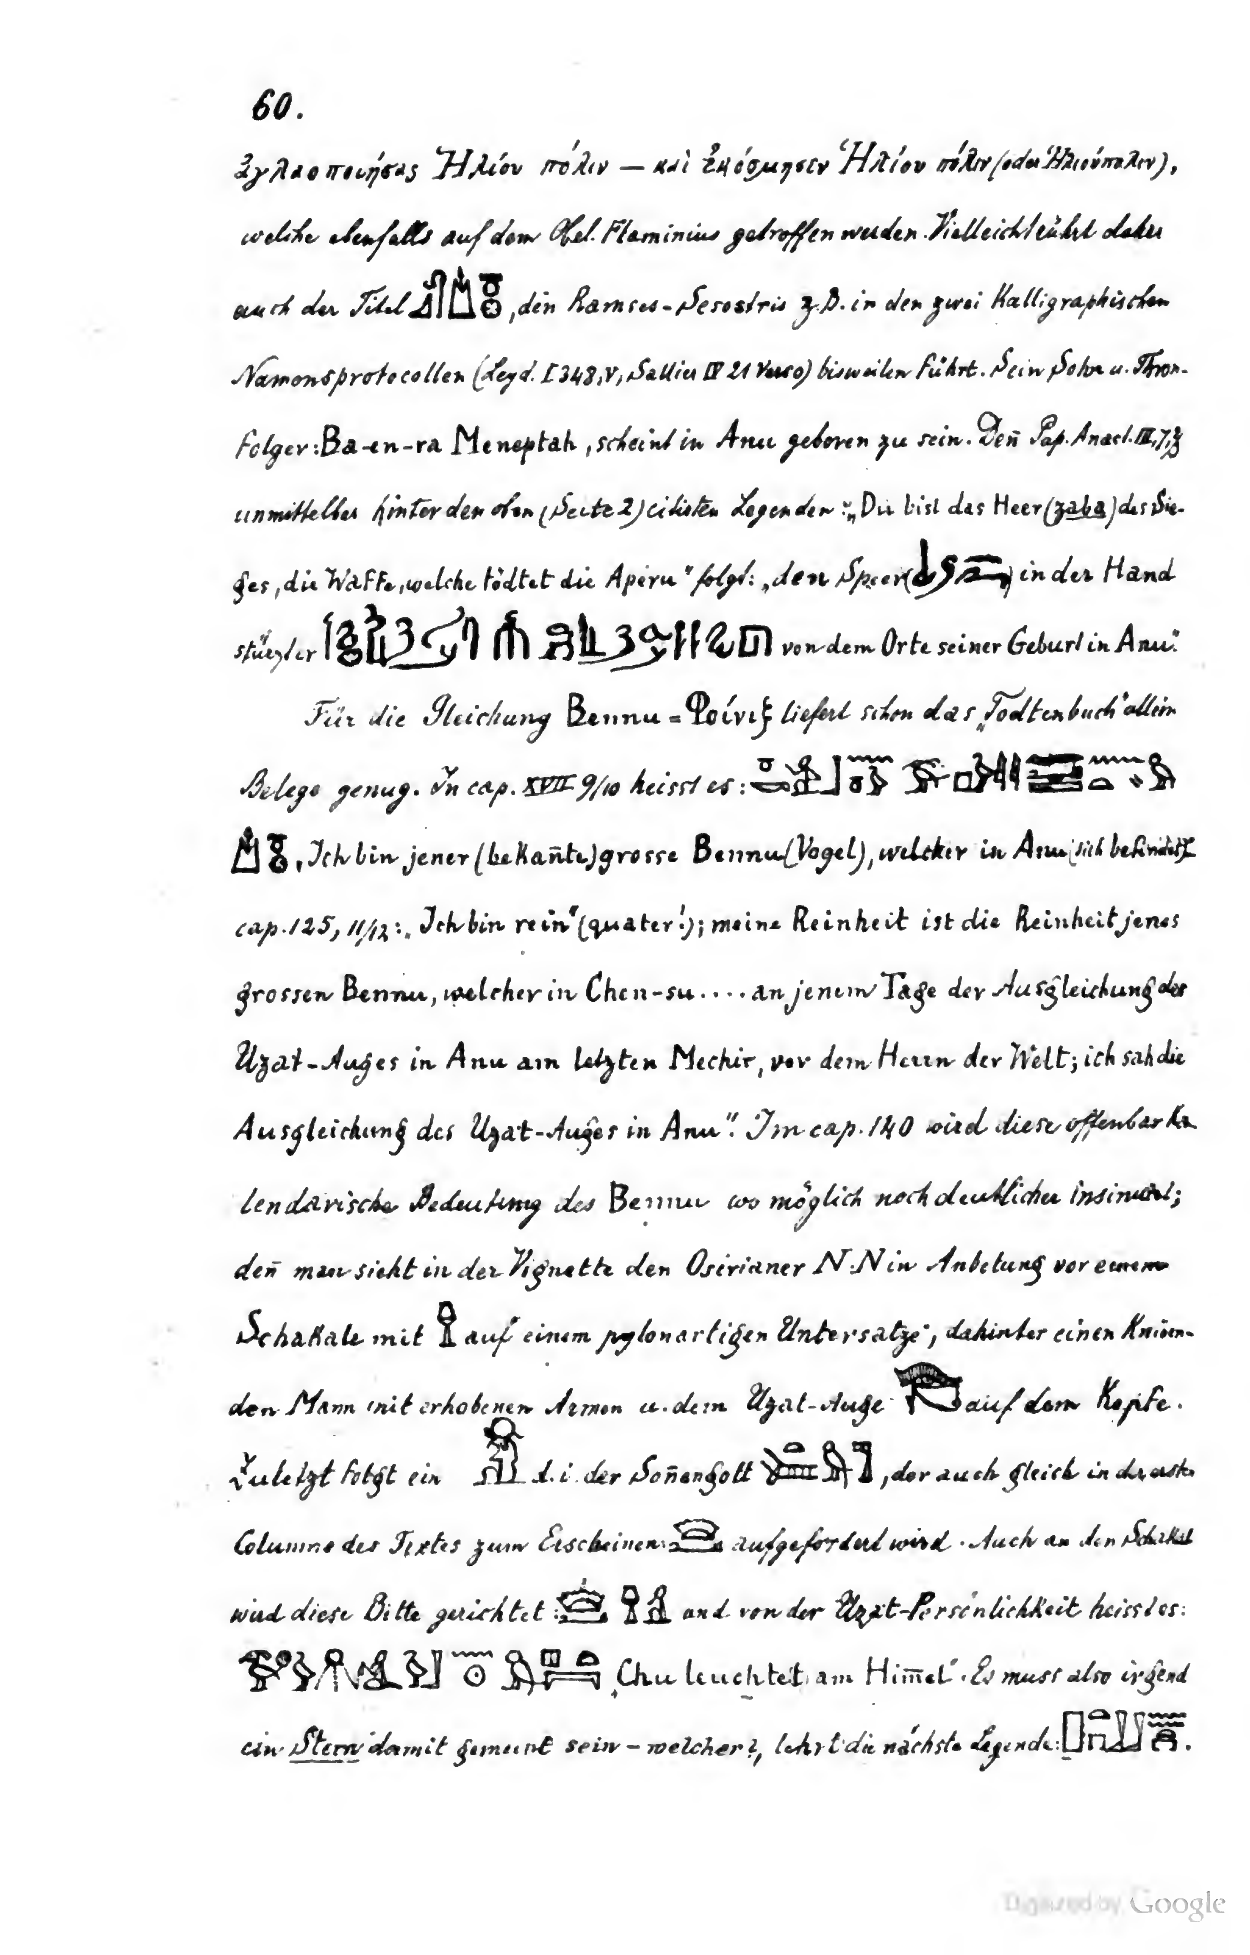 60.
ἀγλαοποιήσας Ἡλίου πόλιν — καὶ ἐκόσμησεν Ἡλίου πόλιν (oder Ἡλιούπολιν),
welche ebenfalls auf dem Obel. Flaminius getroffen werden. Vielleicht rührt daher
auch der Titel , den Ramses-Sesostris z. B. in den zwei Kalligraphischen
Namensprotocollen (Leyd. I 348, V, Sallier IV 21 Verso) bisweilen führt. Sein Sohn u. Thron-
folger: Ba-en-ra Meneptah, scheint in Anu geboren zu sein. Den̄ Pap. Anast. III, 7,
unmittelbar hinter den oben (Seite 2) citirten Legenden: „Du bist das Heer (zaba) des Sie-
ges, die Waffe, welche tödtet die Aperu" folgt: „den Speer ( ) in der Hand
stützt er von dem Orte seiner Geburt in Anu".
Für die Gleichung Bennu = Φοίνιξ liefert schon das „Todtenbuch" allein
Belege genug. In cap. XVII 9/10 heisst es:
„Ich bin jener (bekan̄te) grosse Bennu (Vogel), welcher in Anu (sich befindet)"
cap. 125, 11/12: „Ich bin rein" (quater!); meine Reinheit ist die Reinheit jenes
grossen Bennu, welcher in Chen-su .... an jenem Tage der Ausgleichung des
Uzat-Auges in Anu am letzten Mechir, vor dem Herrn der Welt; ich sah die
Ausgleichung des Uzat-Auges in Anu". Im cap. 140 wird diese offenbar Ka
lendarische Bedeutung des Bennu wo möglich noch deutlicher insinuirt;
den̄ man sieht in der Vignette den Osirianer N. N in Anbetung vor einem
Schakale mit auf einem pylonartigen Untersatze, dahinter einen Knieen-
den Mann mit erhobenen Armen u. dem Uzat-Auge auf dem Kopfe.
Zuletzt folgt ein d. i. der Son̄engott , der auch gleich in der ersten
Columne des Textes zum Erscheinen: aufgefordert wird. Auch an den Schakal
wird diese Bitte gerichtet: und von der Uzat-Persönlichkeit heisst es:
„Chu leuchtet am Him̄el". Es muss also irgend
ein Stern damit gemeint sein – welcher?, lehrt die nächste Legende: .
Digitized by Google